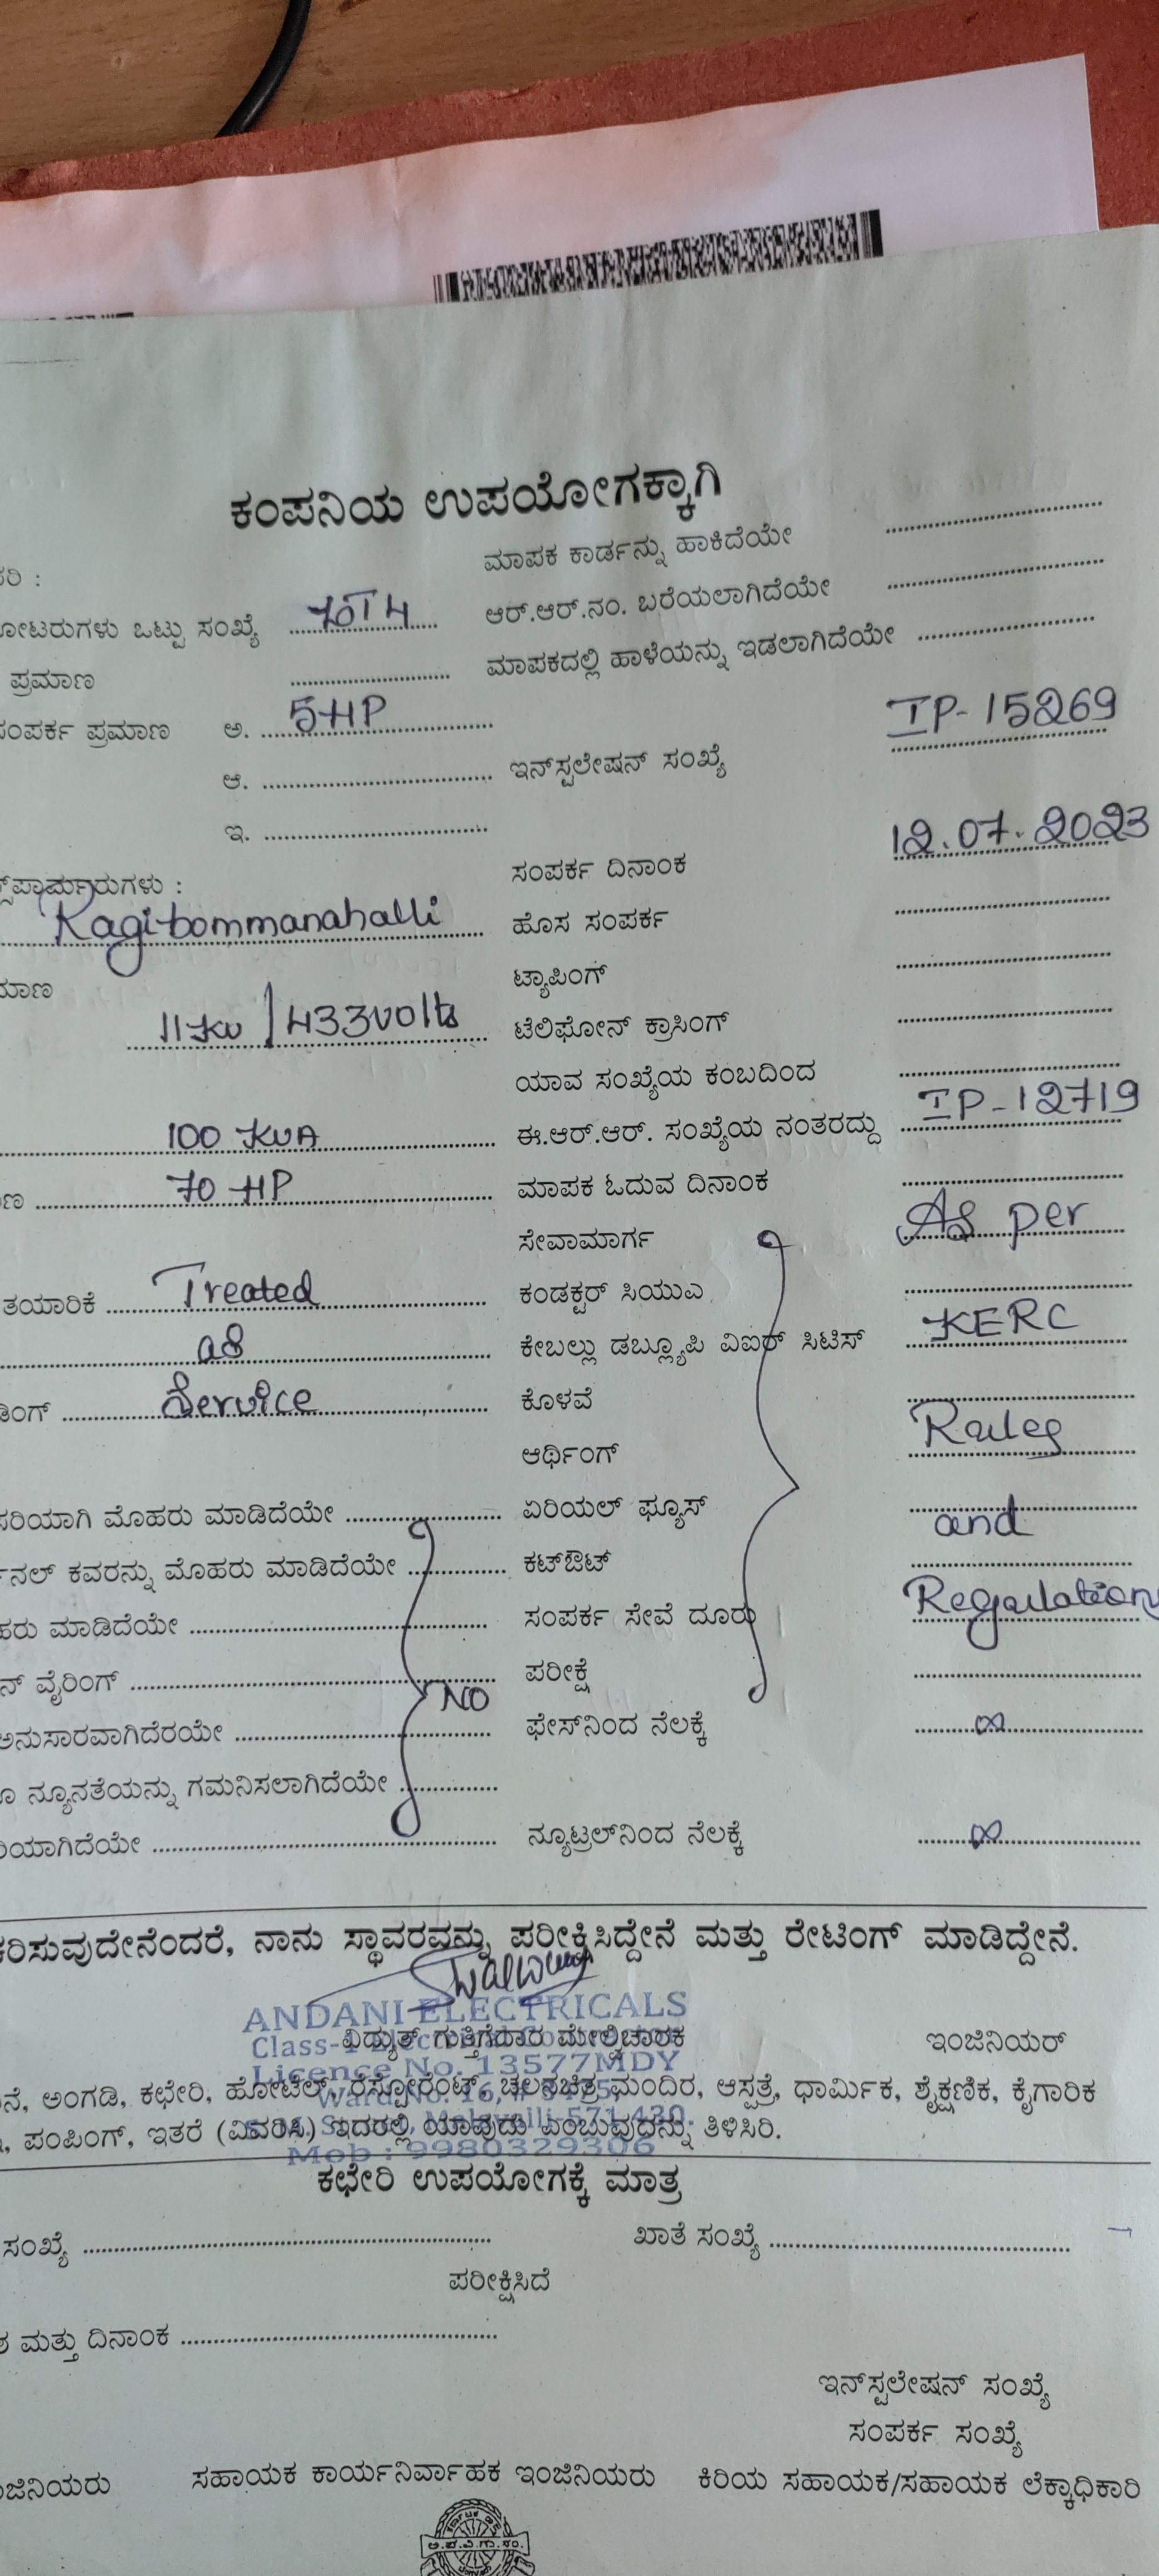 ಕಂಪನಿಯ ಉಪಯೋಗಕ್ಕಾಗಿ
ಮಾಪಕ ಕಾರ್ಡನ್ನು ಹಾಕಿದೆಯೇ
ಒಟ್ಟು ಸಂಖ್ಯೆ ಆರ್.ಆರ್.ನಂ. ಬರೆಯಲಾಗಿದೆಯೇ
ಪ್ರಮಾಣ ಮಾಪಕದಲ್ಲಿ ಹಾಳೆಯನ್ನು ಇಡಲಾಗಿದೆಯೇ
ಸಂಪರ್ಕ ಪ್ರಮಾಣ ಅ. 5 HP
ಆ. ಇನ್‌ಸ್ಟಲೇಷನ್ ಸಂಖ್ಯೆ IP-15269
ಇ.
ಸಂಪರ್ಕ ದಿನಾಂಕ 12.07.2023
Ragibommanahalli ಹೊಸ ಸಂಪರ್ಕ
ಟ್ಯಾಪಿಂಗ್
11 KV / 433 volts ಟೆಲಿಫೋನ್ ಕ್ರಾಸಿಂಗ್
ಯಾವ ಸಂಖ್ಯೆಯ ಕಂಬದಿಂದ
100 KVA ಈ.ಆರ್.ಆರ್. ಸಂಖ್ಯೆಯ ನಂತರದ್ದು IP-12719
70 HP ಮಾಪಕ ಓದುವ ದಿನಾಂಕ
ಸೇವಾಮಾರ್ಗ As per
ತಯಾರಿಕೆ Treated ಕಂಡಕ್ಟರ್ ಸಿಯುಎ
as ಕೇಬಲ್ಲು ಡಬ್ಲ್ಯೂಪಿ ವಿಐಆರ್ ಸಿಟಿಸ್ KERC
Service ಕೊಳವೆ
ಆರ್ಥಿಂಗ್ Rules
ಸರಿಯಾಗಿ ಮೊಹರು ಮಾಡಿದೆಯೇ ಏರಿಯಲ್ ಫ್ಯೂಸ್ and
ಕವರನ್ನು ಮೊಹರು ಮಾಡಿದೆಯೇ ಕಟ್‌ಔಟ್
ಮಾಡಿದೆಯೇ ಸಂಪರ್ಕ ಸೇವೆ ದೂರು Regulations
ವೈರಿಂಗ್ NO ಪರೀಕ್ಷೆ
ಅನುಸಾರವಾಗಿದೆರಯೇ ಫೇಸ್‌ನಿಂದ ನೆಲಕ್ಕೆ ∞
ನ್ಯೂನತೆಯನ್ನು ಗಮನಿಸಲಾಗಿದೆಯೇ
ನ್ಯೂಟ್ರಲ್‌ನಿಂದ ನೆಲಕ್ಕೆ ∞
ನಾನು ಸ್ಥಾವರವನ್ನು ಪರೀಕ್ಷಿಸಿದ್ದೇನೆ ಮತ್ತು ರೇಟಿಂಗ್ ಮಾಡಿದ್ದೇನೆ.
ANDANI ELECTRICALS
ವಿದ್ಯುತ್ ಗುತ್ತಿಗೆದಾರ ಮೇಲ್ವಿಚಾರಕ ಇಂಜಿನಿಯರ್
Licence No. 13577MDY
ಅಂಗಡಿ, ಕಛೇರಿ, ಹೋಟೆಲ್, ರೆಸ್ಟೋರೆಂಟ್, ಚಲನಚಿತ್ರ ಮಂದಿರ, ಆಸ್ಪತ್ರೆ, ಧಾರ್ಮಿಕ, ಶೈಕ್ಷಣಿಕ, ಕೈಗಾರಿಕ
ಪಂಪಿಂಗ್, ಇತರೆ (ವಿವರಿಸಿ) ಇದರಲ್ಲಿ ಯಾವುದು ಎಂಬುವುದನ್ನು ತಿಳಿಸಿರಿ.
Mob : 9980329306
ಕಛೇರಿ ಉಪಯೋಗಕ್ಕೆ ಮಾತ್ರ
ಸಂಖ್ಯೆ ಖಾತೆ ಸಂಖ್ಯೆ
ಪರೀಕ್ಷಿಸಿದೆ
ಮತ್ತು ದಿನಾಂಕ
ಇನ್‌ಸ್ಟಲೇಷನ್ ಸಂಖ್ಯೆ
ಸಂಪರ್ಕ ಸಂಖ್ಯೆ
ಸಹಾಯಕ ಕಾರ್ಯನಿರ್ವಾಹಕ ಇಂಜಿನಿಯರು ಕಿರಿಯ ಸಹಾಯಕ/ಸಹಾಯಕ ಲೆಕ್ಕಾಧಿಕಾರಿ